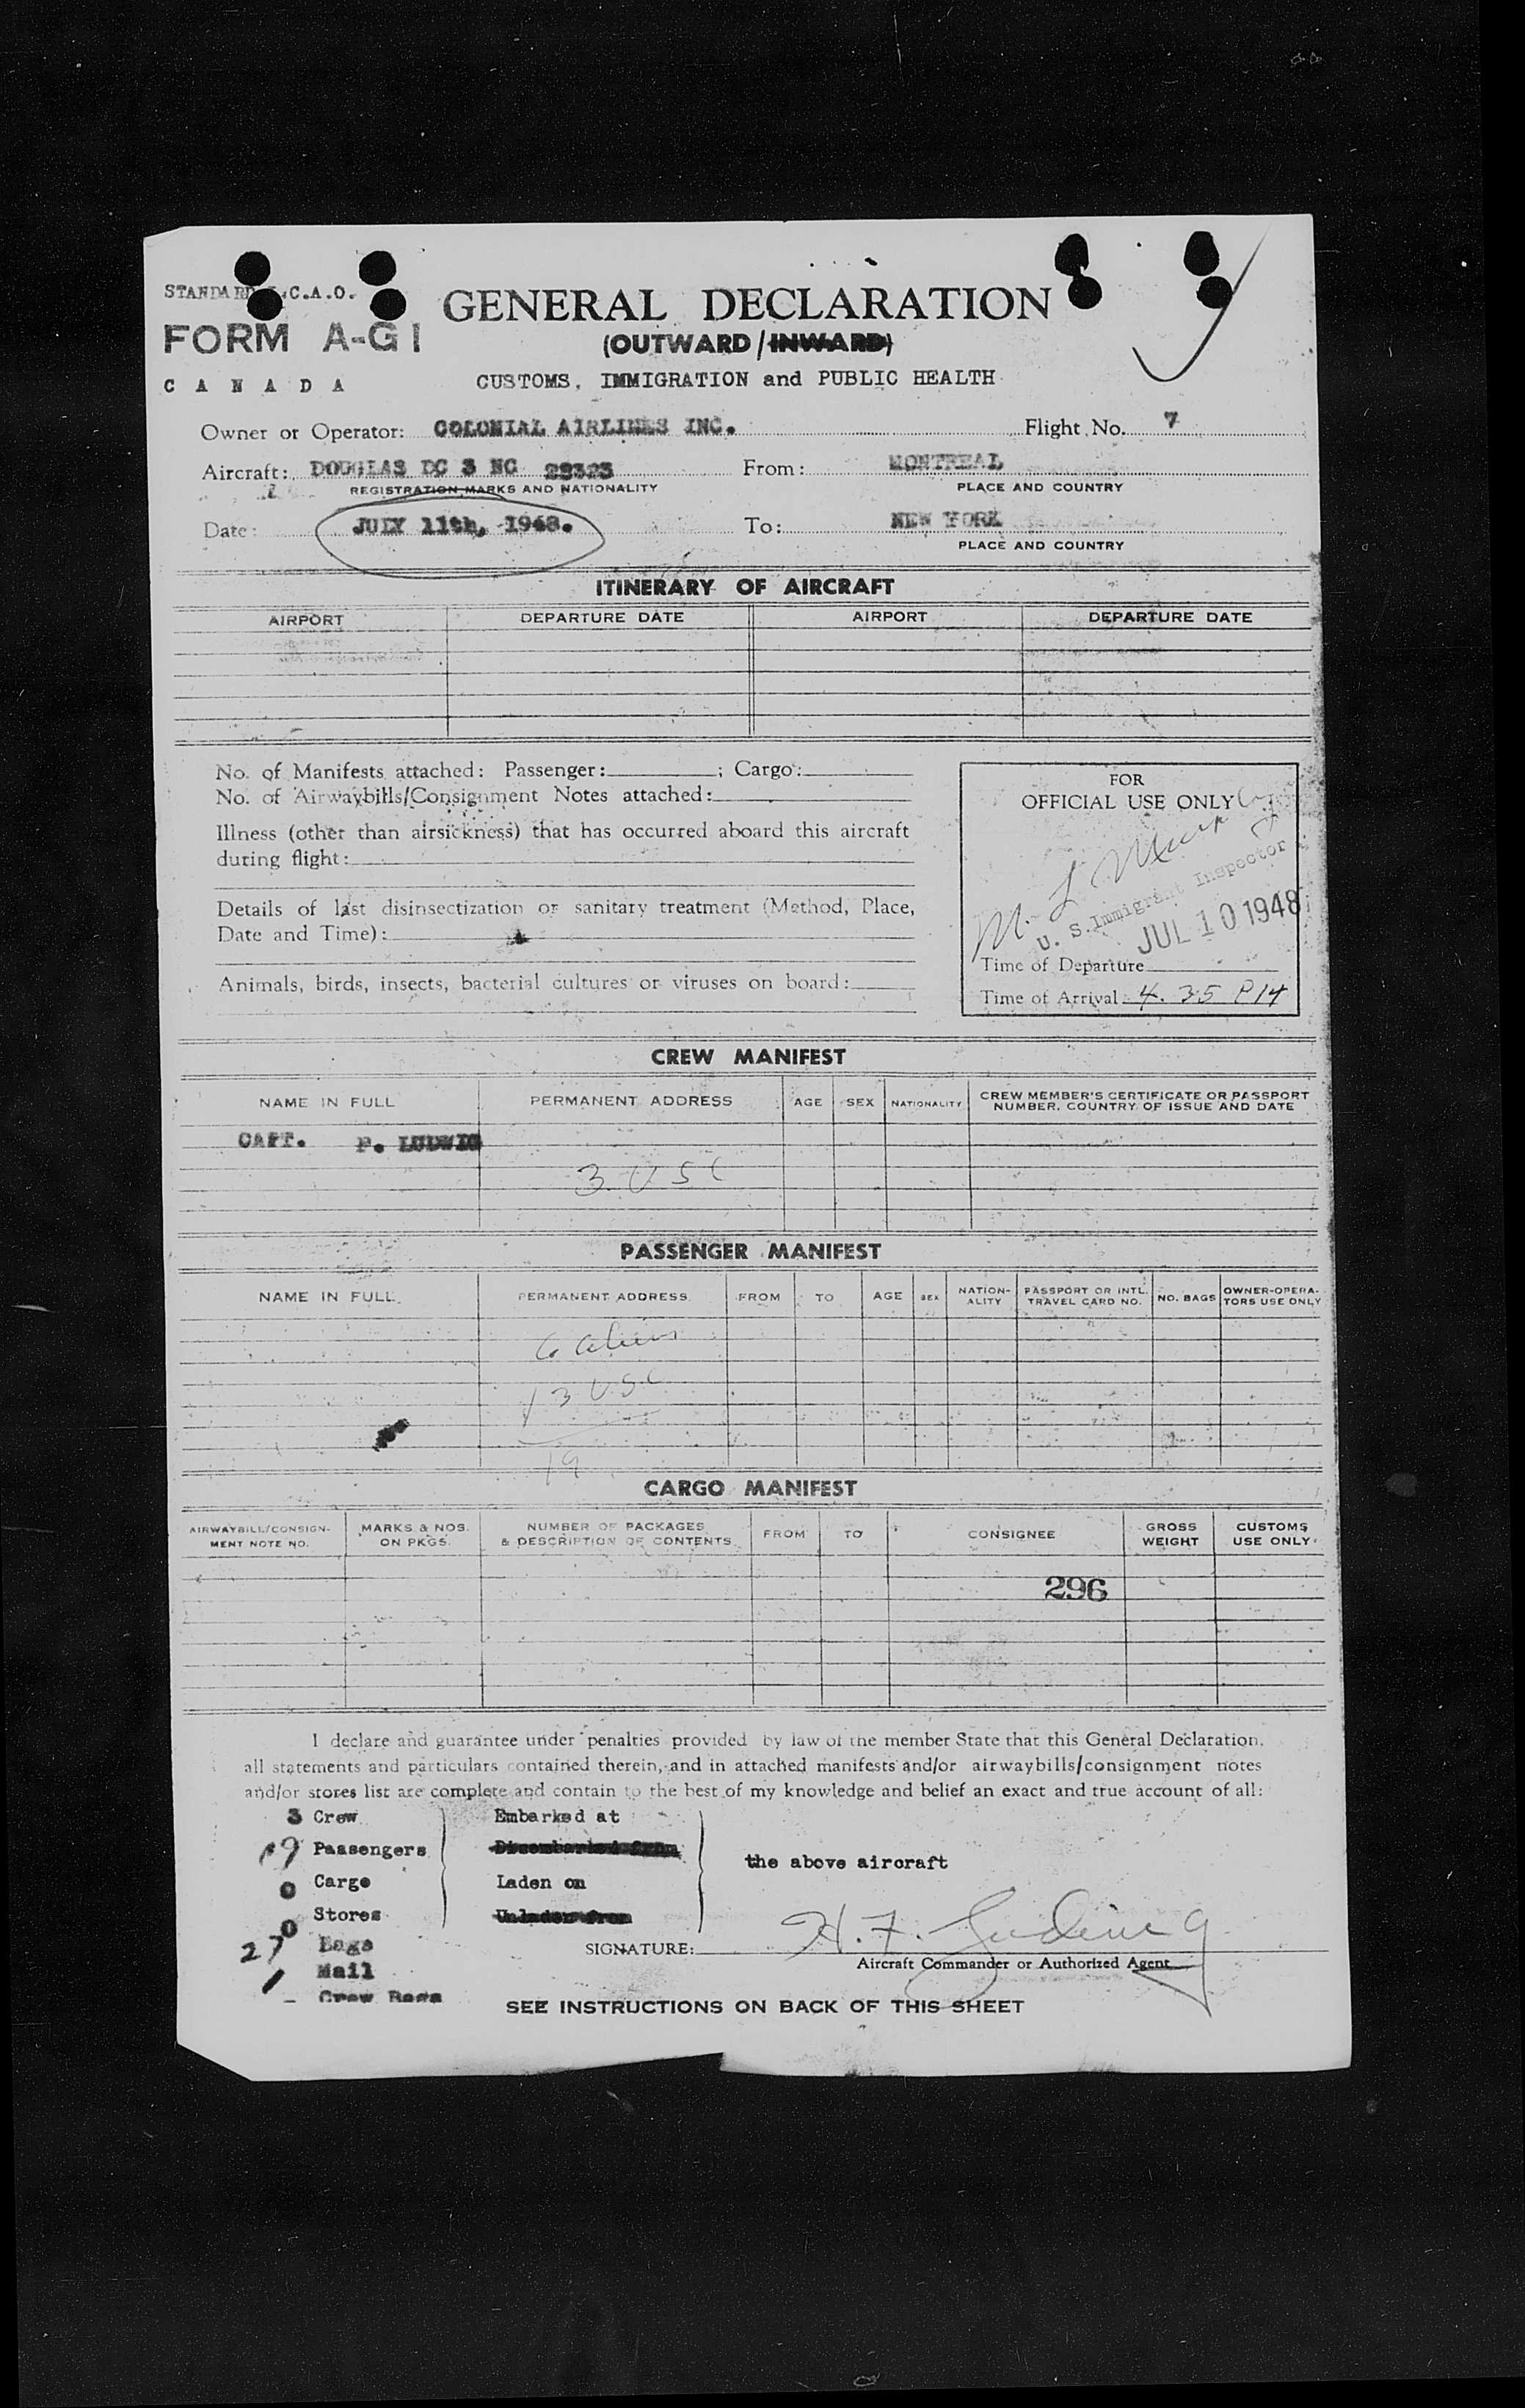 STANDARD I.C.A.O.
FORM A-G1
CANADA
GENERAL DECLARATION
(OUTWARD/INWARD)
CUSTOMS, IMMIGRATION and PUBLIC HEALTH
Owner or Operator: COLONIAL AIRLINES INC. Flight No. 7
Aircraft: DOUGLAS DC 3 NC 28323 From: MONTREAL
REGISTRATION MARKS AND NATIONALITY PLACE AND COUNTRY
Date: JULY 11th, 1948. To: NEW YORK
PLACE AND COUNTRY
ITINERARY OF AIRCRAFT
AIRPORT DEPARTURE DATE AIRPORT DEPARTURE DATE
No. of Manifests attached: Passenger: ; Cargo:
No. of Airwaybills/Consignment Notes attached:
Illness (other than airsickness) that has occurred aboard this aircraft
during flight:
Details of last disinsectization or sanitary treatment (Method, Place,
Date and Time):
Animals, birds, insects, bacterial cultures or viruses on board:
FOR
OFFICIAL USE ONLY
M. L Murphy
U. S. Immigrant Inspector
JUL 10 1948
Time of Departure
Time of Arrival 4.35 PM
CREW MANIFEST
NAME IN FULL PERMANENT ADDRESS AGE SEX NATIONALITY CREW MEMBER'S CERTIFICATE OR PASSPORT
NUMBER, COUNTRY OF ISSUE AND DATE
CAPT. F. LUDWIG
3 USC
PASSENGER MANIFEST
NAME IN FULL PERMANENT ADDRESS FROM TO AGE SEX NATION-
ALITY PASSPORT OR INTL.
TRAVEL CARD NO. NO. BAGS OWNER-OPERA-
TORS USE ONLY
6 aliens
13 USC
19
CARGO MANIFEST
AIRWAYBILL/CONSIGN-
MENT NOTE NO. MARKS & NOS.
ON PKGS. NUMBER OF PACKAGES
& DESCRIPTION OF CONTENTS FROM TO CONSIGNEE GROSS
WEIGHT CUSTOMS
USE ONLY
296
I declare and guarantee under penalties provided by law of the member State that this General Declaration,
all statements and particulars contained therein, and in attached manifests and/or airwaybills/consignment notes
and/or stores list are complete and contain to the best of my knowledge and belief an exact and true account of all:
3 Crew Embarked at
19 Passengers Disembarked from
the above aircraft
0 Cargo Laden on
0 Stores Unladen from
27 Bags
SIGNATURE: H. F. Ludwig
Aircraft Commander or Authorized Agent
1 Mail
- Crew Bags
SEE INSTRUCTIONS ON BACK OF THIS SHEET